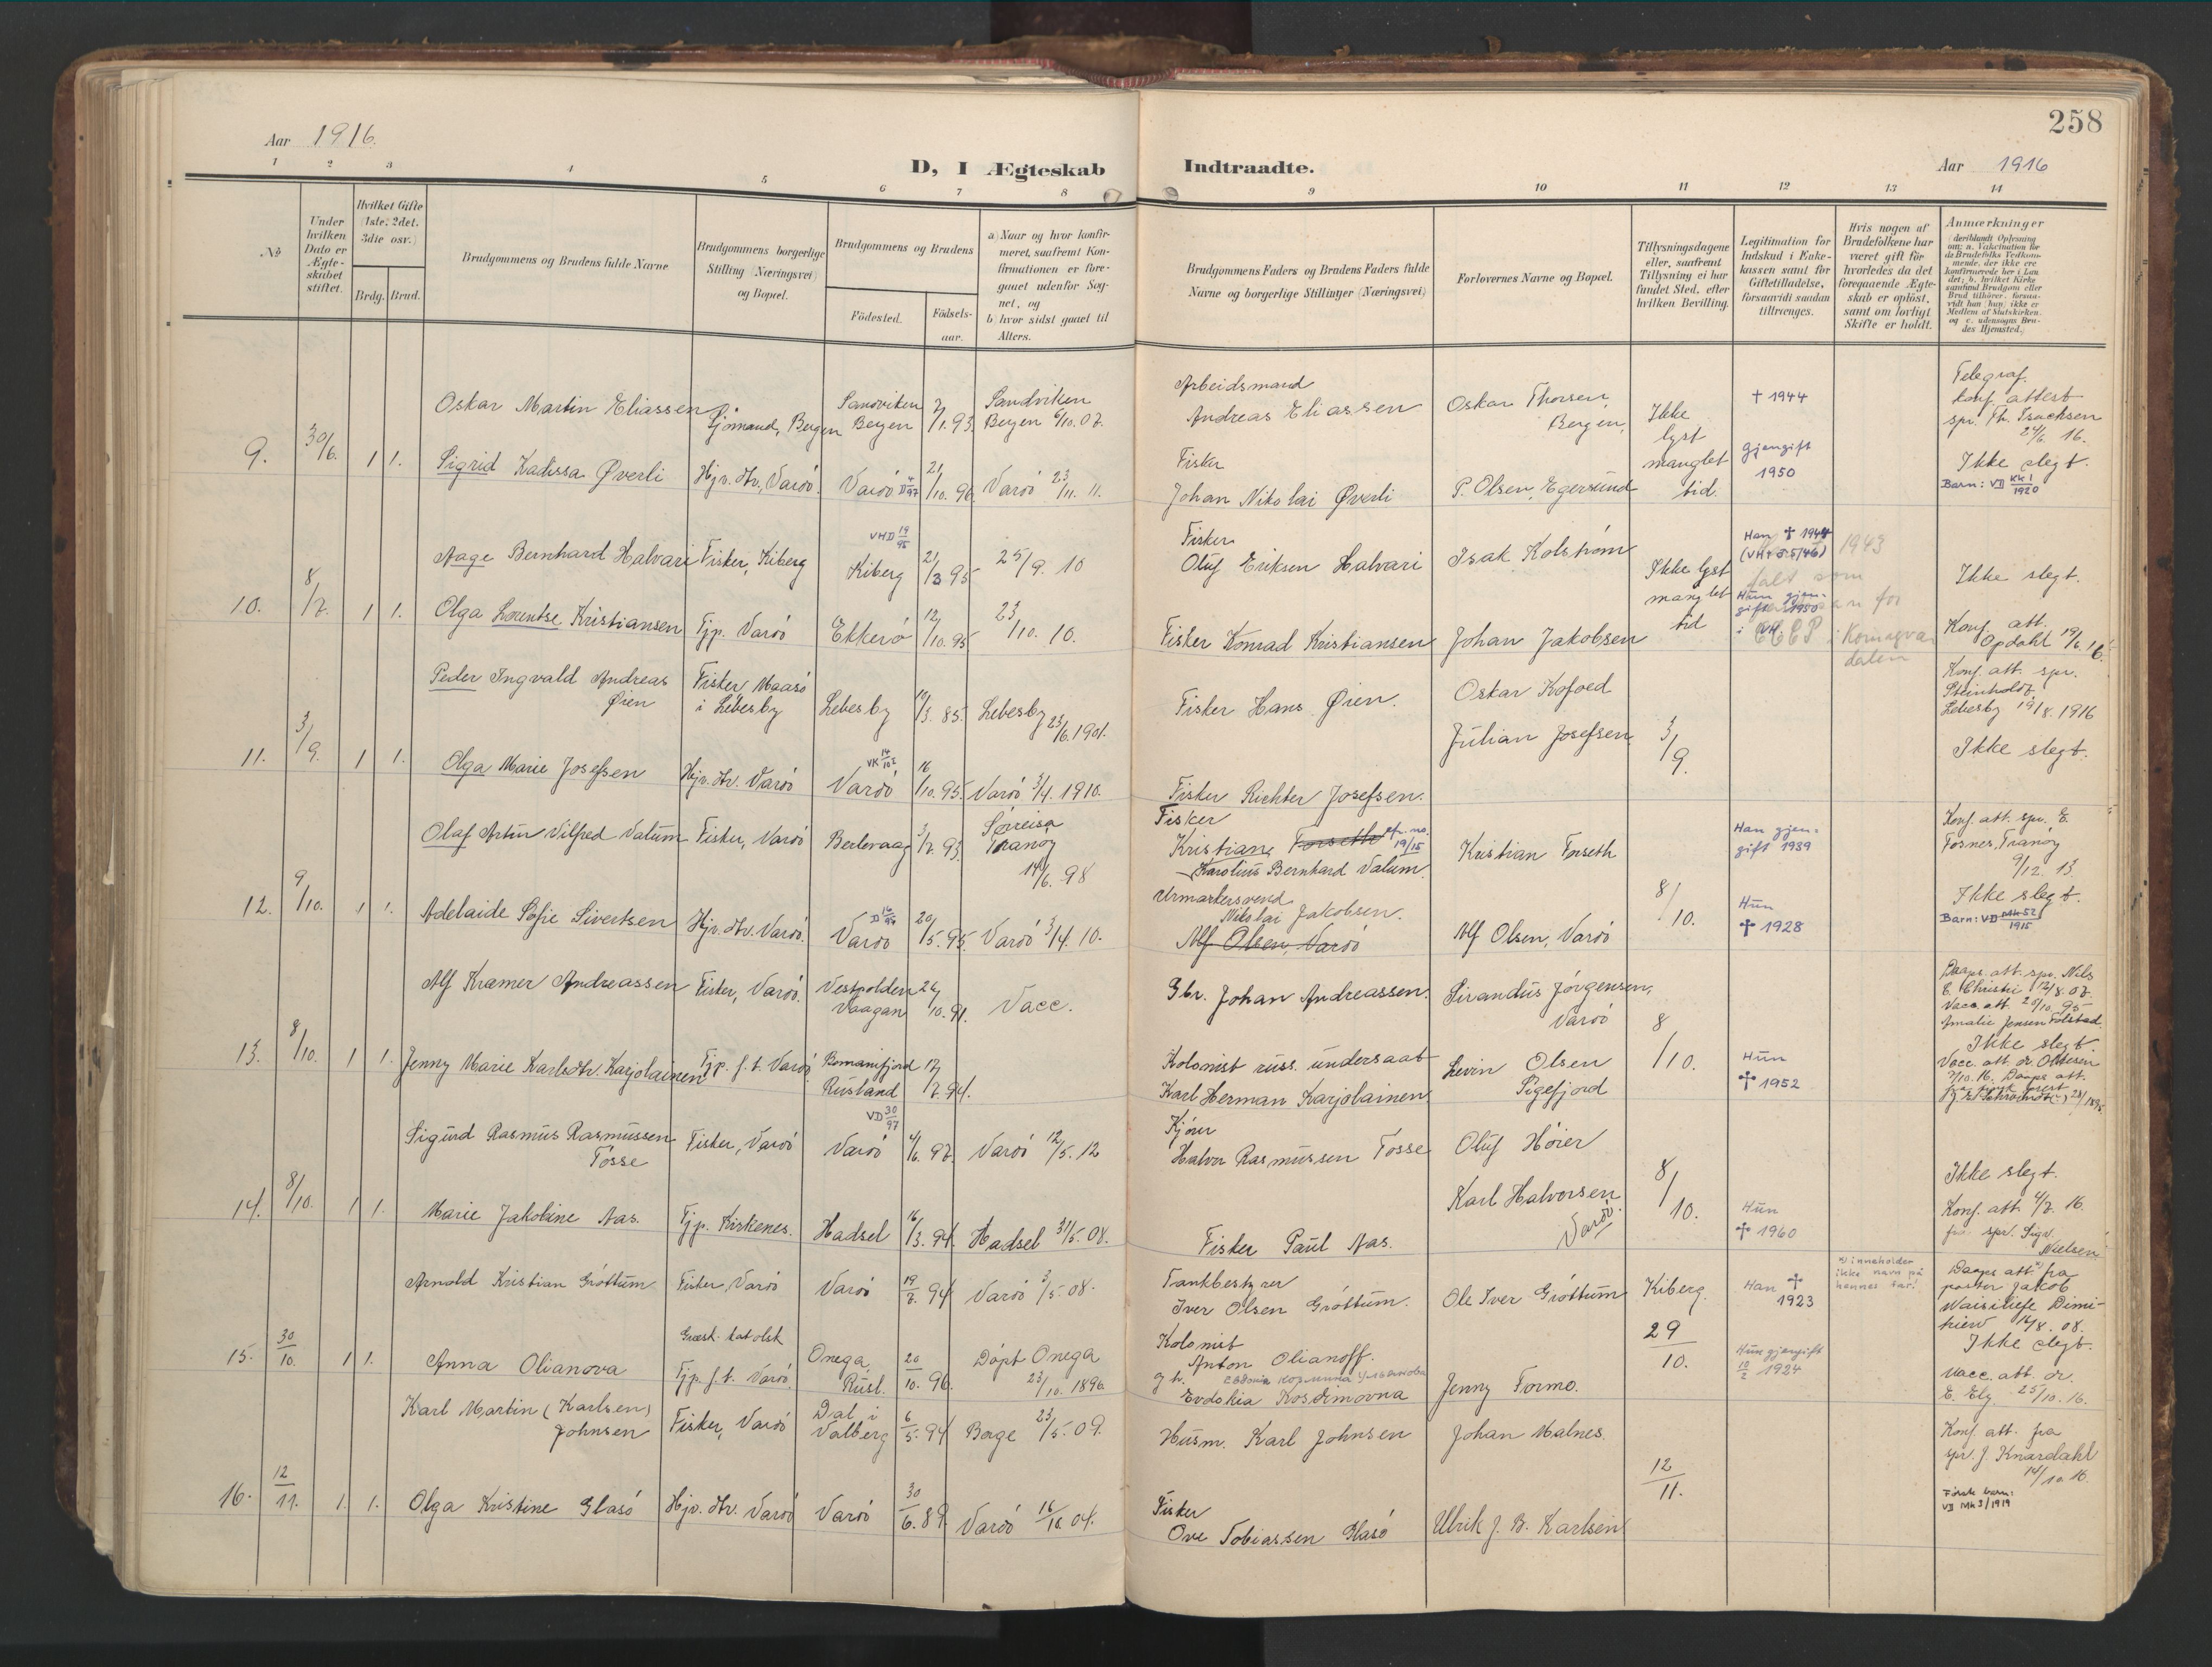 258
Aar 1916.
D, I Ægteskab Indtraadte.
Aar 1916
1 2 3 4 5 6 7 8 9 10 11 12 13 14
No
Under hvilken Dato er Ægteskabet stiftet.
Hvilket Gifte (1ste, 2det, 3die osv.)
Brdg. Brud.
Brudgommens og Brudens fulde Navne
Brudgommens borgerlige Stilling (Næringsvei) og Bopæl.
Brudgommens og Brudens
Födested.
Födselsaar.
a) Naar og hvor konfirmeret, saafremt Konfirmationen er foregaaet udenför Sognet, og
b) hvor sidst gaaet til Alters.
Brudgommens Faders og Brudens Faders fulde Navne og borgerlige Stillinger (Næringsvei)
Forlovernes Navne og Bopæl.
Tillysningsdagene eller, saafremt Tillysning ei har fundet Sted, efter hvilken Bevilling.
Legitimation for Indskud i Enkekassen samt for Giftetilladelse, forsaavidt saadan tiltrænges.
Hvis nogen af Brudefolkene har været gift för hvorledes da det foregaaende Ægteskab er oplöst, samt om lovligt Skifte er holdt.
Anmærkninger
(deriblandt Oplysning om: a. Vakcination för da Brudefolks Vedkommende, der ikke ere konfirmerede her i Landet; b. hvilket Kirkesamfund Brudgom eller Brud tilhörer, forsaavidt han (hun) ikke er Medlem af Statskirken. og c. udensogns Brudes Hjemsted.)
9. 30/6. 1 1.
Oskar Martin Eliassen Sjömand, Bergen Sandviken Bergen 7/1. 93. Sandviken Bergen 6/10. 07.
Arbeidsmand Andreas Eliassen Oskar Thorsen, Bergen,
Ikke lyst manglet tid.
† 1944
Telegraf. konf. attest spr. Th. Isachsen 24/6. 16.
Sigrid Kadissa Øverli Hjv. dtr., Vardö. Vardö D 4/97 21/10. 96. Vardö 23/11. 11.
Fisker Johan Nikolai Øverli P. Olsen, Egersund
gjengift 1950
Ikke slegt.
Barn: VD KK 1/1920
10. 8/7. 1 1.
Aage Bernhard Halvari Fisker, Kiberg VHD 19/95 Kiberg 21/3 95 25/9. 10
Fisker Oluf Eriksen Halvari Isak Kolström
Ikke lyst manglet tid
Han † 1944 (VH† 5.5/46) 1943
falt som
Hun gjengift 1950
i Komagvardalen
Ikke slegt.
Olga Lorentse Kristiansen Tjp. Vardö Ekkerö 12/10. 95 23/10. 10.
Fisker Konrad Kristiansen Johan Jakobsen
Konf. att. Opdahl 19/6. 16.
11. 3/9. 1 1.
Peder Ingvald Andreas Øien Fisker, Maasö i Lebesby Lebesby 10/3. 85. Lebesby 23/6. 1901.
Fisker Hans Øien. Oskar Kofoed
Julian Josefsen 3/9.
Konf. att. spr. Steinholdt, Lebesby 19/8. 1916
Ikke slegt.
Olga Marie Josefsen Hjv. dtr. Vardö VK Vardö 16/10. 95. Vardö 3/4. 1910.
Fisker Richter Josefsen.
12. 9/10. 1 1.
Olaf Artur Vilfred Valum Fisker, Vardö Berlevaag 3/7. 93. Sörreisa Tranöy 14/6. 98
Fisker Kristian Forseth cfr. no. 19/15
Karolius Bernhard Valum. Kristian Forseth
Han gjengift 1939
Konf. att. spr. E. Fosnes, Tranöy 9/12. 13.
Ikke slegt.
Barn: VD MK 52/1915
Adelaide Sofie Sivertsen Hjv. dtr. Vardö. D Vardö 20/5. 95. Vardö 3/4. 10.
Urmakersvend Nikolai Jakobsen.
Alf Olsen, Vardö Alf Olsen, Vardö 8/10.
Hun † 1928
13. 8/10. 1 1.
Alf Kramer Andreassen Fisker, Vardö. Vestpolden Vaagan 26/10. 91. Vacc.
Gbr. Johan Andreassen. Sirandus Jörgensen, Vardö 8/10.
Daaps. att. spr. Nils E. Christie 12/8. 07.
Vacc. att. 20/10. 95 Amalie Jensen Folstad.
Ikke slegt
Jenny Marie Karlsdtr. Karjolainen Tjp. f. t. Vardö Bomanifjord Rusland 17/7. 94.
Kolonist russ. undersaat Karl Herman Karjolainen Levin Olsen Sigefjord
Hun † 1952
Vacc. att. dr. Ottesen 7/10. 16. Daaps att.
14. 8/10. 1 1.
Sigurd Rasmus Rasmussen Fosse Fisker, Vardö VD 30/97 Vardö 4/6. 97. Vardö 12/5. 12
Kjörer Halvor Rasmussen Fosse Oluf Höier
Karl Halvorsen Vardö. 8/10.
Ikke slegt.
Marie Jakobine Aas. Tjp. Kirkenes. Hadsel 16/3. 94. Hadsel 31/5. 08.
Fisker Paul Aas.
Hun † 1960
Konf. att. 4/7. 16. fra spr. Sigv. Nielsen.
15. 30/10. 1 1.
Arnold Kristian Gröttum Fisker, Vardö Vardö 19/8. 94 Vardö 3/5. 08.
Tankbestyrer Iver Olsen Gröttum. Ole Iver Gröttum Kiberg.
29/10.
Han † 1923
*) inneholder ikke navn på hennes far!
Daaps att. *) fra pastor Jakob Waisiliefe Dimitriew 16/8. 08.
Ikke slegt.
Græsk katolsk
Anna Olianova Tjp. f. t. Vardö. Onega, Rusl. 20/10. 96. Döpt Onega 23/10. 1896.
Kolonist Anton Olianoff.
g. h. Евдокия Козмина Ульянова
Evdokia Kosdimovna Jenny Formo.
Hun gjengift 10/2 1924
Vacc. att. dr. E. Ely. 25/10. 16.
16. 12/11. 1. 1.
Karl Martin (Karlsen) Johnsen Fisker, Vardö Dal i Valberg 6/5. 94 Borge 23/5. 09.
Husm. Karl Johnsen Johan Malnes.
12/11.
Konf. att. fra spr. J. Knardahl 14/10. 16.
Olga Kristine Glasö Hjv. dtr. Vardö Vardö 30/6. 89. Vardö 16/10. 04.
Fisker Ove Tobiassen Glasö Ulrik J. B. Karlsen
Første barn: VD Mk 3/1919